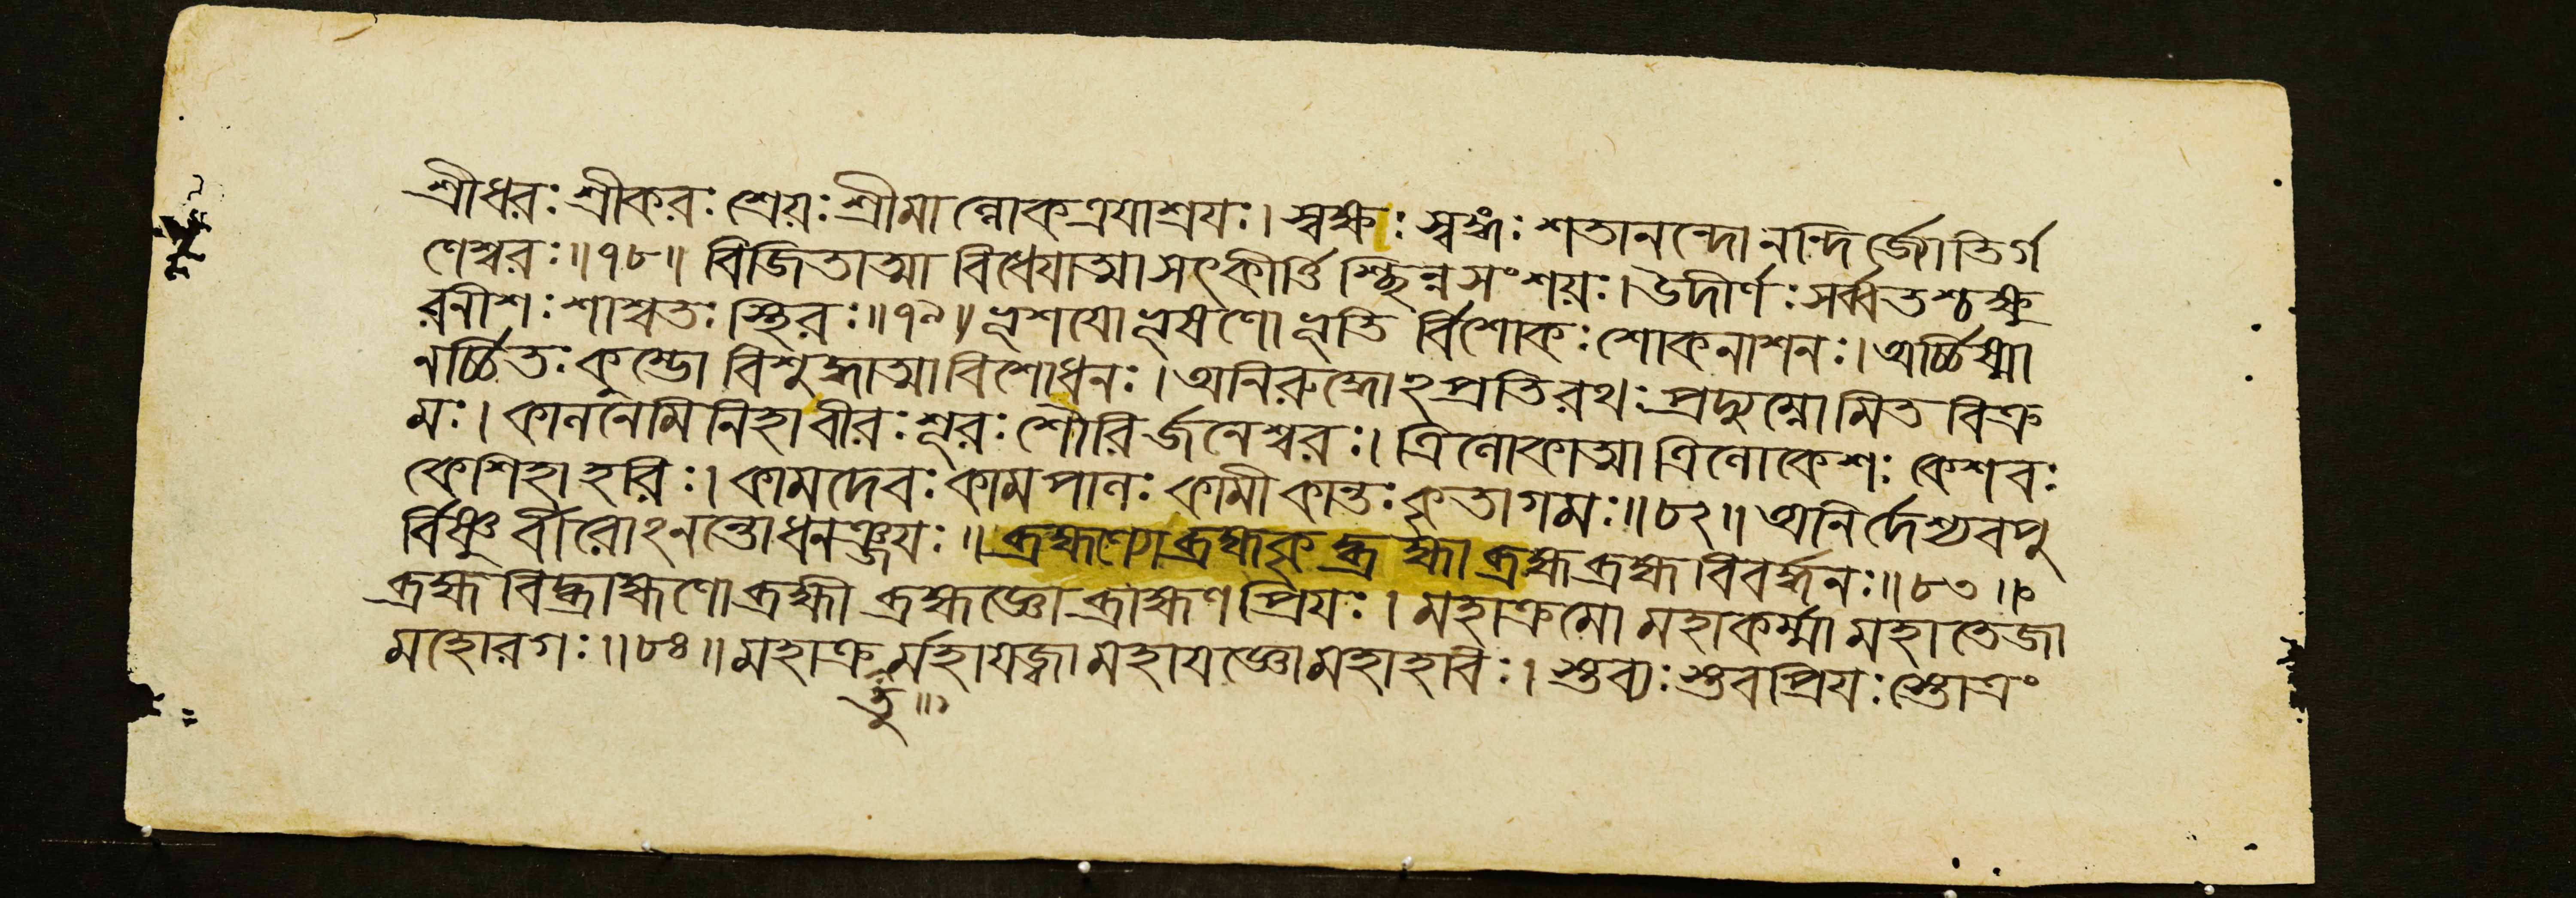 শ্রীধরঃ শ্রীকরঃ শ্রেয়ঃ শ্রীমান্লোকত্রযাশ্রযঃ। স্বক্ষঃ স্বঙ্গঃ শতানন্দো নন্দির্জ্জ্যোতির্গ
ণেশ্বরঃ॥৭৮॥ বিজিতাত্মা বিধেযাত্মা সৎকীর্ত্তিশ্ছিন্নসংশয়ঃ। উদীর্ণঃ সর্ব্বতশ্চক্ষু
রনীশঃ শাশ্বতঃ স্থিরঃ॥৭৯॥ ভূশযো ভূষণো ভূতি র্বিশোকঃ শোকনাশনঃ। অর্চ্চিষ্মা
নর্চ্চিতঃ কুম্ভো বিশুদ্ধাত্মা বিশোধনঃ। অনিরুদ্ধোঽপ্রতিরথঃ প্রদ্যুম্নোমিত বিক্র
মঃ। কালনেমিনিহা বীরঃ শূরঃ শৌরির্জনেশ্বরঃ। ত্রিলোকাত্মা ত্রিলোকেশঃ কেশবঃ
কেশিহা হরিঃ। কামদেবঃ কামপালঃ কামী কান্তঃ কৃতাগমঃ॥৮২॥ অনির্দেশ্যবপু
র্বিষ্ণু র্বীরোঽনন্তো ধনঞ্জযঃ॥ ব্রহ্মণ্যো ব্রহ্মকৃদ্ব্রহ্মা ব্রহ্ম ব্রহ্মবিবর্দ্ধনঃ॥৮৩॥
ব্রহ্মবিদ্ব্রাহ্মণো ব্রহ্মী ব্রহ্মজ্ঞো ব্রাহ্মণপ্রিযঃ। মহাক্রমো মহাকর্ম্মা মহাতেজা
মহোরগঃ॥৮৪॥ মহাক্রর্মহাযজ্বা মহাযজ্ঞো মহাহবিঃ। স্তব্যঃ স্তবপ্রিযঃ স্তোত্রং
তু॥